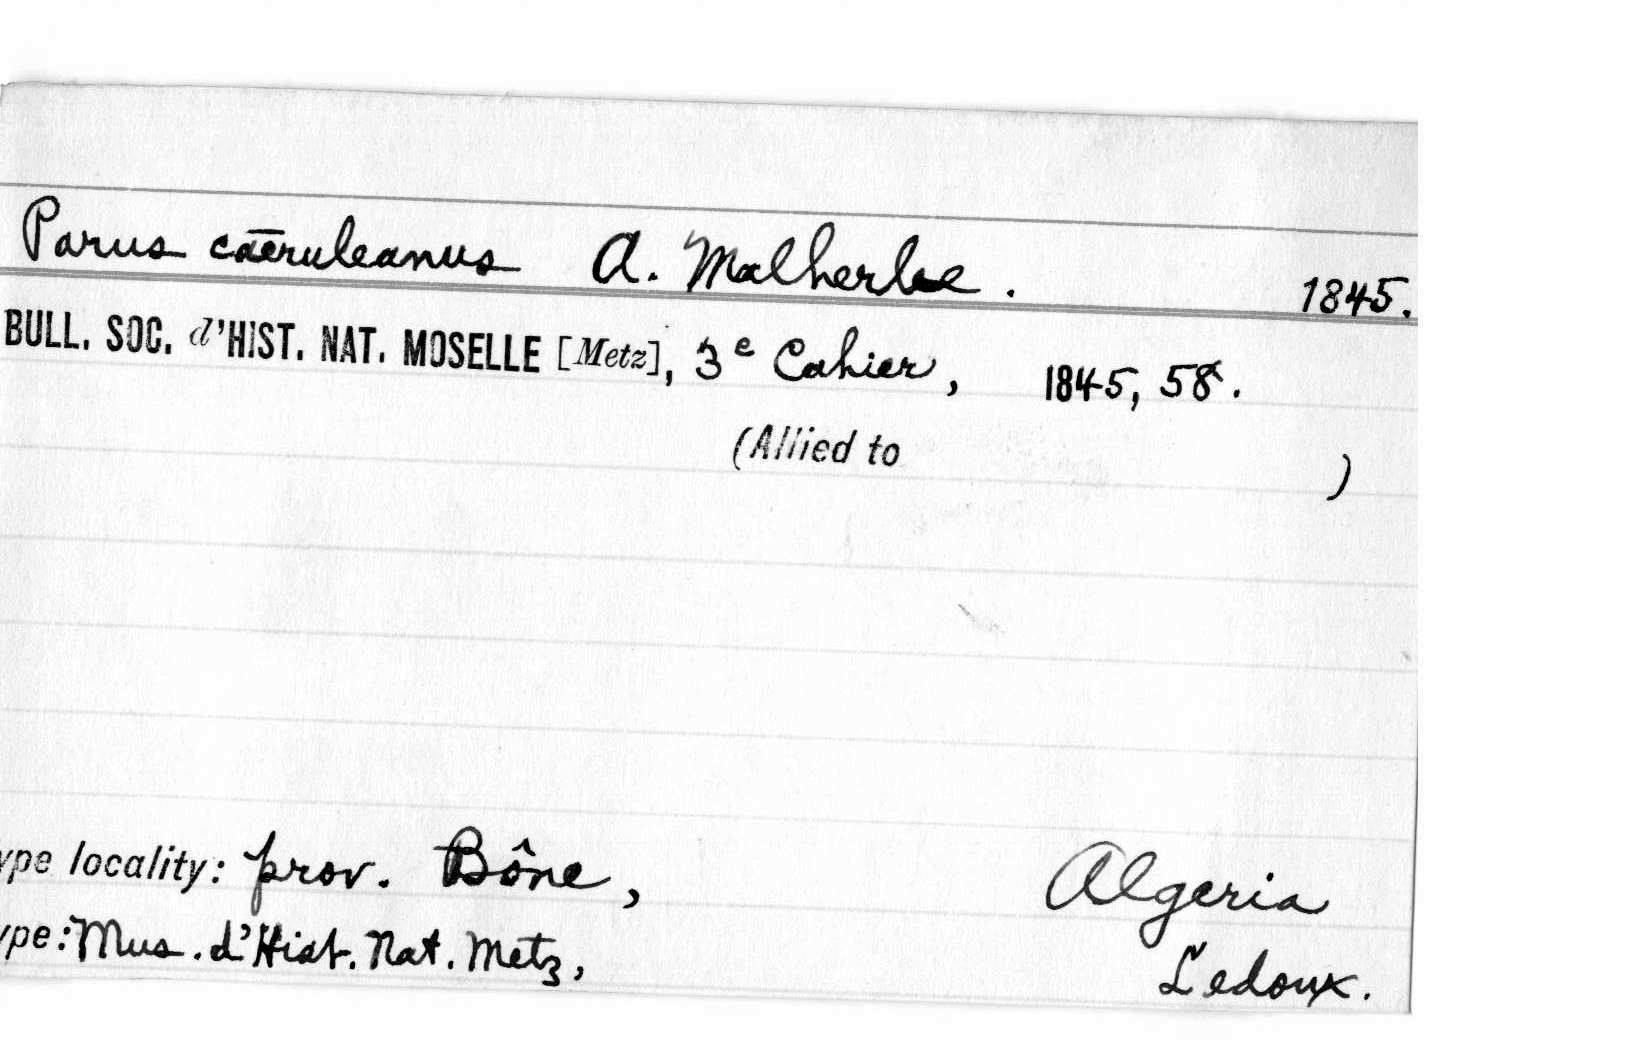 Parus caeruleanus A. Malherbe. 1845.
BULL. SOC. d'HIST. NAT. MOSELLE [Metz], 3e Cahier, 1845, 58.
(Allied to )
ype locality: prov. Bône, Algeria
ype: Mus. d'Hist. Nat. Metz, Ledoux.